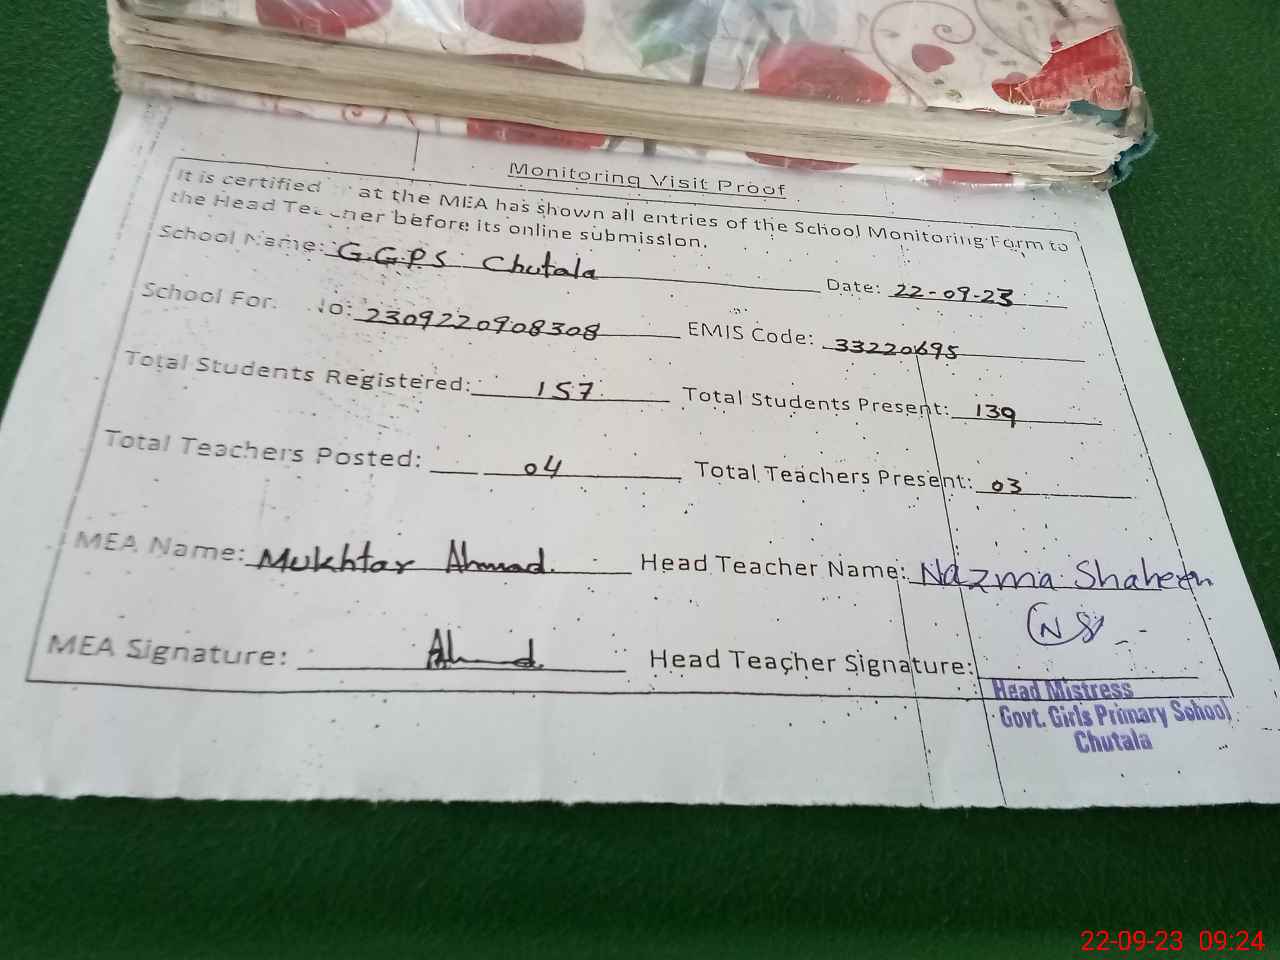 Monitoring Visit Proof
It is certified at the MEA has shown all entries of the School Monitoring Form to
the Head Teacher before its online submission.
School Name: G.G.P.S Chutala Date: 22-09-23
School For. No: 2309220908308 EMIS Code: 33220695
Total Students Registered: 157 Total Students Present: 139
Total Teachers Posted: 04 Total Teachers Present: 03
MEA Name: Mukhtar Ahmad. Head Teacher Name: Nazma Shaheen
MEA Signature: Ahmad. Head Teacher Signature: NS
Head Mistress
Govt. Girls Primary School
Chutala
22-09-23 09:24